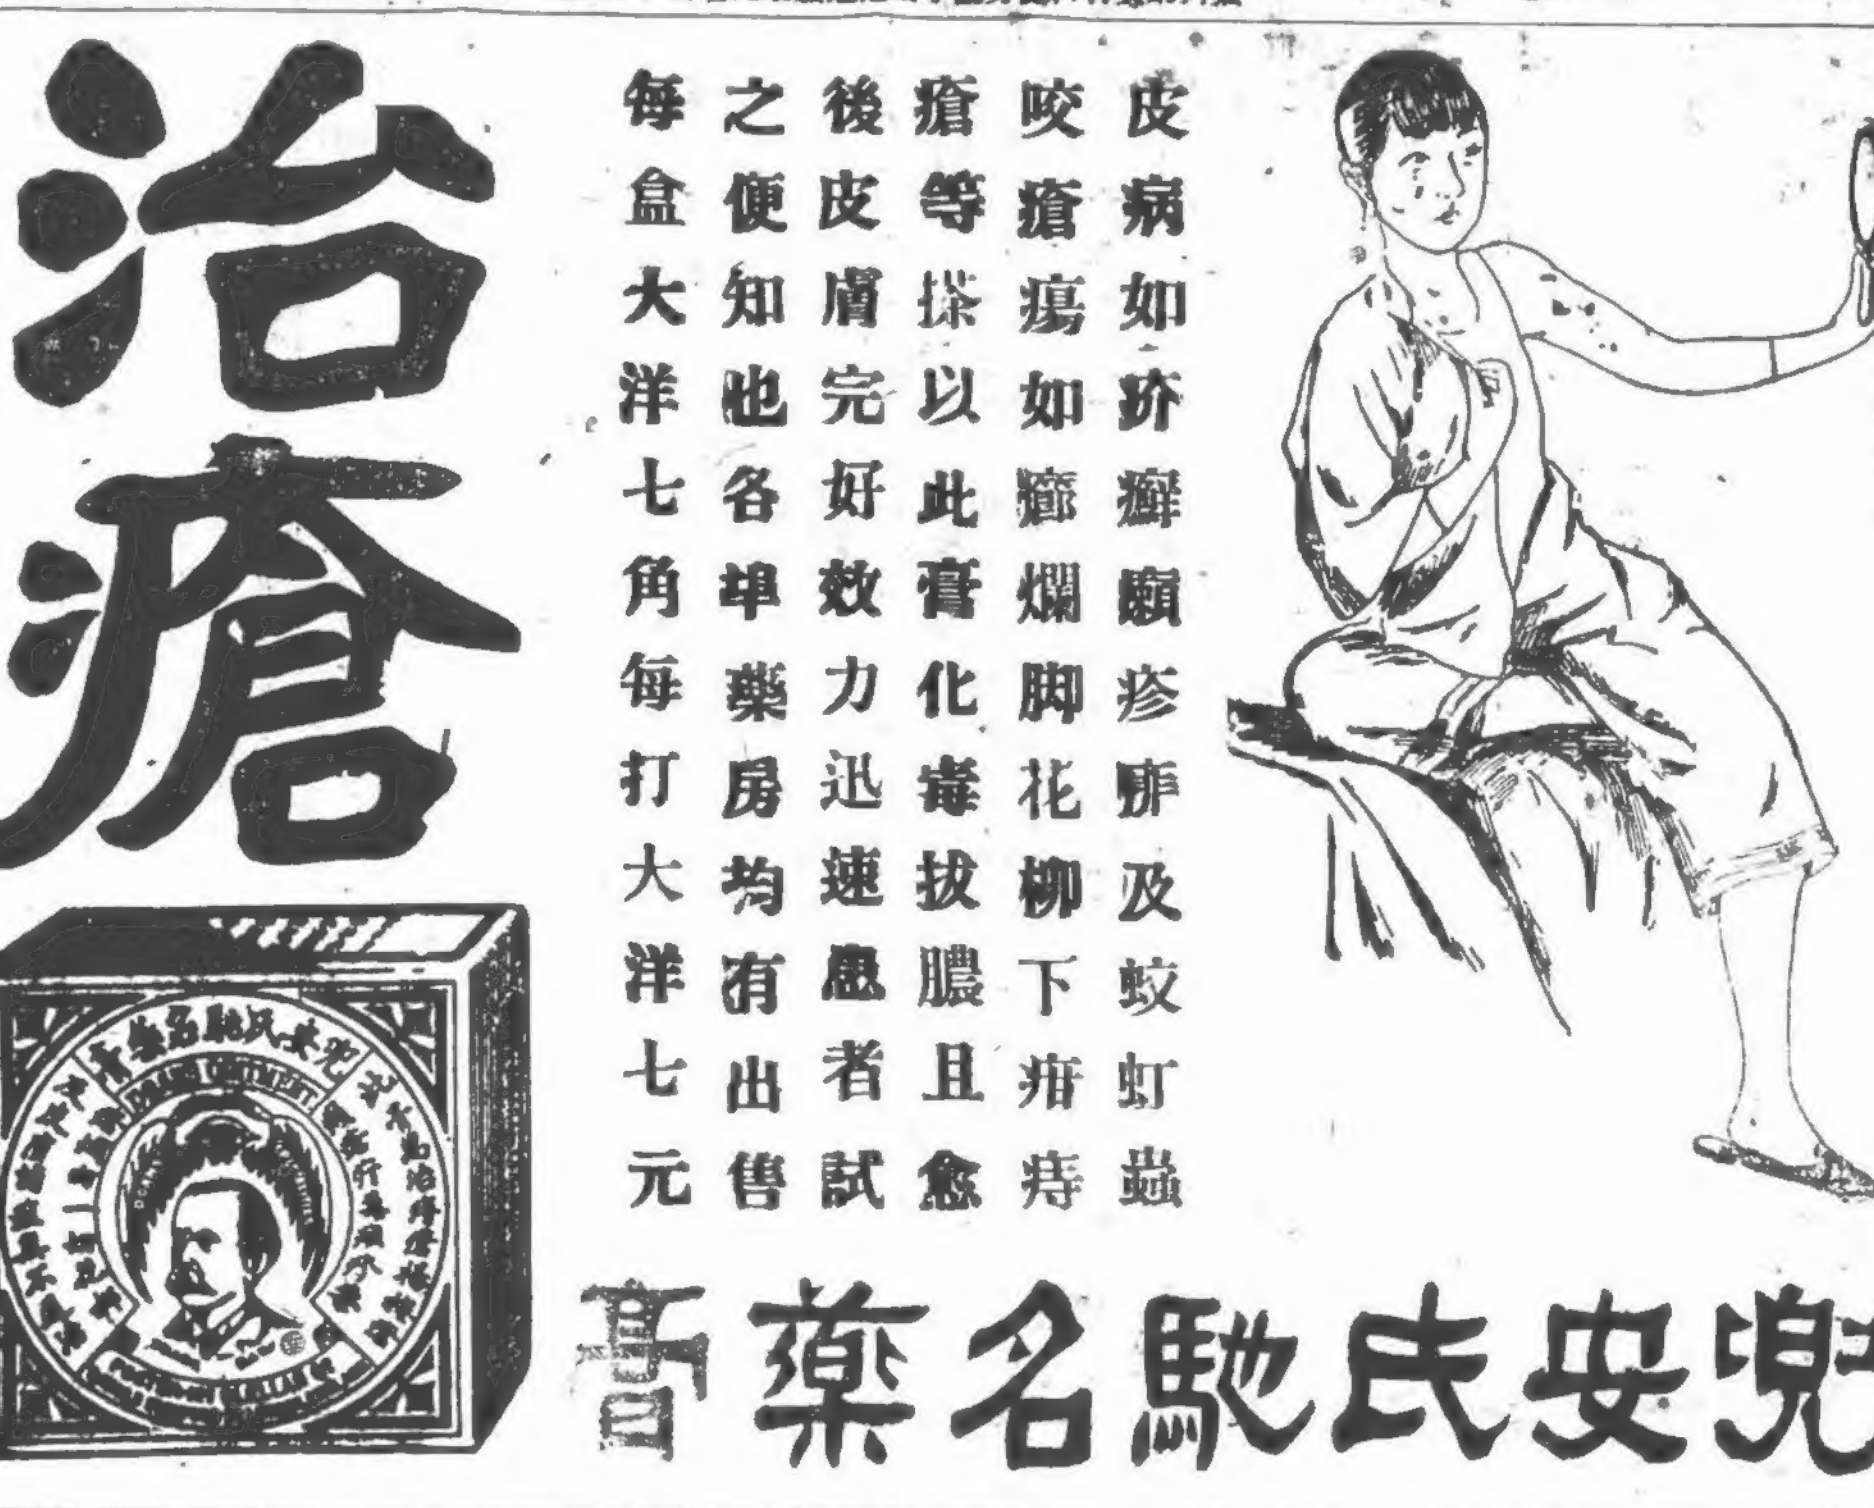 治瘡
皮病如疥癬癩疹痱及蚊虹蟲
咬瘡瘍如爛脚花柳下疳痔
瘡等搽以此膏化毒拔膿且愈
後皮膚完好效力迅速患者試
之便知也各埠藥房均有出售
每盒大洋七角每打大洋七元
兜安氏馳名藥膏
兜安氏馳名藥膏
DOAN'S OINTMENT